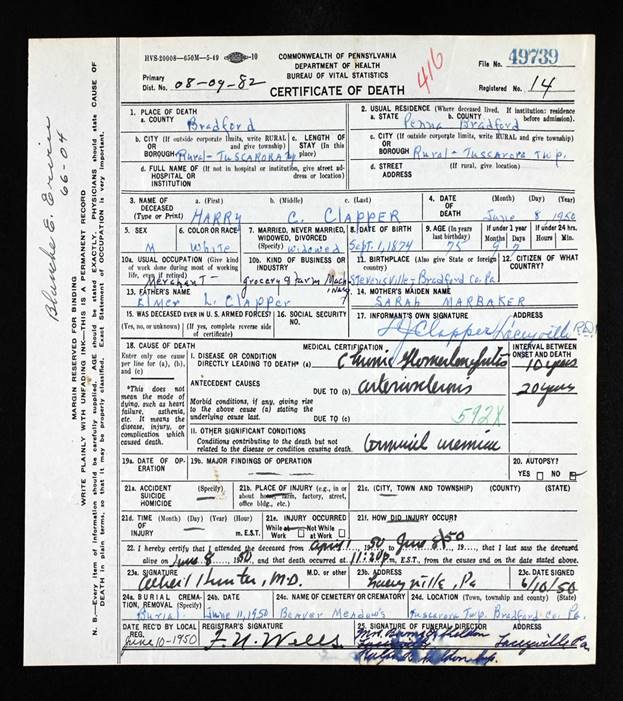 HVS-20008—650M—5-49 10
COMMONWEALTH OF PENNSYLVANIA
DEPARTMENT OF HEALTH
BUREAU OF VITAL STATISTICS
CERTIFICATE OF DEATH
416
File No. 49739
Primary
Dist. No. 08-09-82
Registered No. 14
1. PLACE OF DEATH
a. COUNTY Bradford
2. USUAL RESIDENCE (Where deceased lived. If institution: residence before admission).
a. STATE Penna b. COUNTY Bradford
b. CITY (If outside corporate limits, write RURAL and give township)
OR
BOROUGH Rural-TUSCARORA Twp
c. LENGTH OF STAY (In this place)
c. CITY (If outside corporate limits, write RURAL and give township)
OR
BOROUGH Rural-Tuscarora Twp.
d. FULL NAME OF (If not in hospital or institution, give street address or location)
HOSPITAL OR
INSTITUTION
d. STREET ADDRESS (If rural, give location)
3. NAME OF DECEASED (Type or Print)
a. (First) b. (Middle) c. (Last)
HARRY C. CLAPPER
4. DATE OF DEATH (Month) (Day) (Year)
June 8 1950
5. SEX M
6. COLOR OR RACE White
7. MARRIED, NEVER MARRIED, WIDOWED, DIVORCED (Specify) Widowed
8. DATE OF BIRTH Sept. 1, 1874
9. AGE (In years last birthday) 75
If under 1 year Months 9 Days 7
If under 24 hrs. Hours Min.
10a. USUAL OCCUPATION (Give kind of work done during most of working life, even if retired) Merchant-
10b. KIND OF BUSINESS OR INDUSTRY grocery & farm
11. BIRTHPLACE (Also give State or foreign country) Stevensville-Bradford Co. Pa
12. CITIZEN OF WHAT COUNTRY?
13. FATHER'S NAME Elmer L. Clapper
14. MOTHER'S MAIDEN NAME SARAH MARBAKER
15. WAS DECEASED EVER IN U.S. ARMED FORCES? (Yes, no, or unknown) (If yes, complete reverse side of certificate)
16. SOCIAL SECURITY NO.
17. INFORMANT'S OWN SIGNATURE ADDRESS
Clapper Laceyville R.D.1
18. CAUSE OF DEATH
Enter only one cause per line for (a), (b), and (c)
*This does not mean the mode of dying, such as heart failure, asthenia, etc. It means the disease, injury, or complication which caused death.
MEDICAL CERTIFICATION
INTERVAL BETWEEN ONSET AND DEATH
I. DISEASE OR CONDITION DIRECTLY LEADING TO DEATH* (a) Chronic Glomerulonephritis 10 years
ANTECEDENT CAUSES
Morbid conditions, if any, giving rise to the above cause (a) stating the underlying cause last.
DUE TO (b) arteriosclerosis 20 years
DUE TO (c)
592X
II. OTHER SIGNIFICANT CONDITIONS
Conditions contributing to the death but not related to the disease or condition causing death.
terminal uremia
19a. DATE OF OPERATION
19b. MAJOR FINDINGS OF OPERATION
20. AUTOPSY? YES NO
21a. ACCIDENT SUICIDE HOMICIDE (Specify)
21b. PLACE OF INJURY (e.g., in or about home, farm, factory, street, office bldg., etc.)
21c. (CITY, TOWN AND TOWNSHIP) (COUNTY) (STATE)
21d. TIME OF INJURY (Month) (Day) (Year) (Hour) m. E.S.T.
21e. INJURY OCCURRED While at Work Not While at Work
21f. HOW DID INJURY OCCUR?
22. I hereby certify that I attended the deceased from April 1 50 to June 8 50, 19...., that I last saw the deceased
alive on June 8 1950, and that death occurred at 11:20 p. m., E.S.T., from the causes and on the date stated above.
23a. SIGNATURE Hunter, M.D. M.D. or other
23b. ADDRESS Laceyville, Pa
23c. DATE SIGNED 6/10/50
24a. BURIAL, CREMATION, REMOVAL (Specify) Burial
24b. DATE June 11, 1950
24c. NAME OF CEMETERY OR CREMATORY Beaver Meadows
24d. LOCATION (Town, township and county) (State) Tuscarora Twp. Bradford Co. Pa.
DATE REC'D BY LOCAL REG. June 10-1950
REGISTRAR'S SIGNATURE Wells
25. SIGNATURE OF FUNERAL DIRECTOR ADDRESS
Sheldon Laceyville Pa.
Blanche E. Ervin
66-04
MARGIN RESERVED FOR BINDING
WRITE PLAINLY WITH UNFADING INK—THIS IS A PERMANENT RECORD
N. B.—Every item of information should be carefully supplied. AGE should be stated EXACTLY. PHYSICIANS should state CAUSE OF
DEATH in plain terms, so that it may be properly classified. Exact Statement of OCCUPATION is very important.